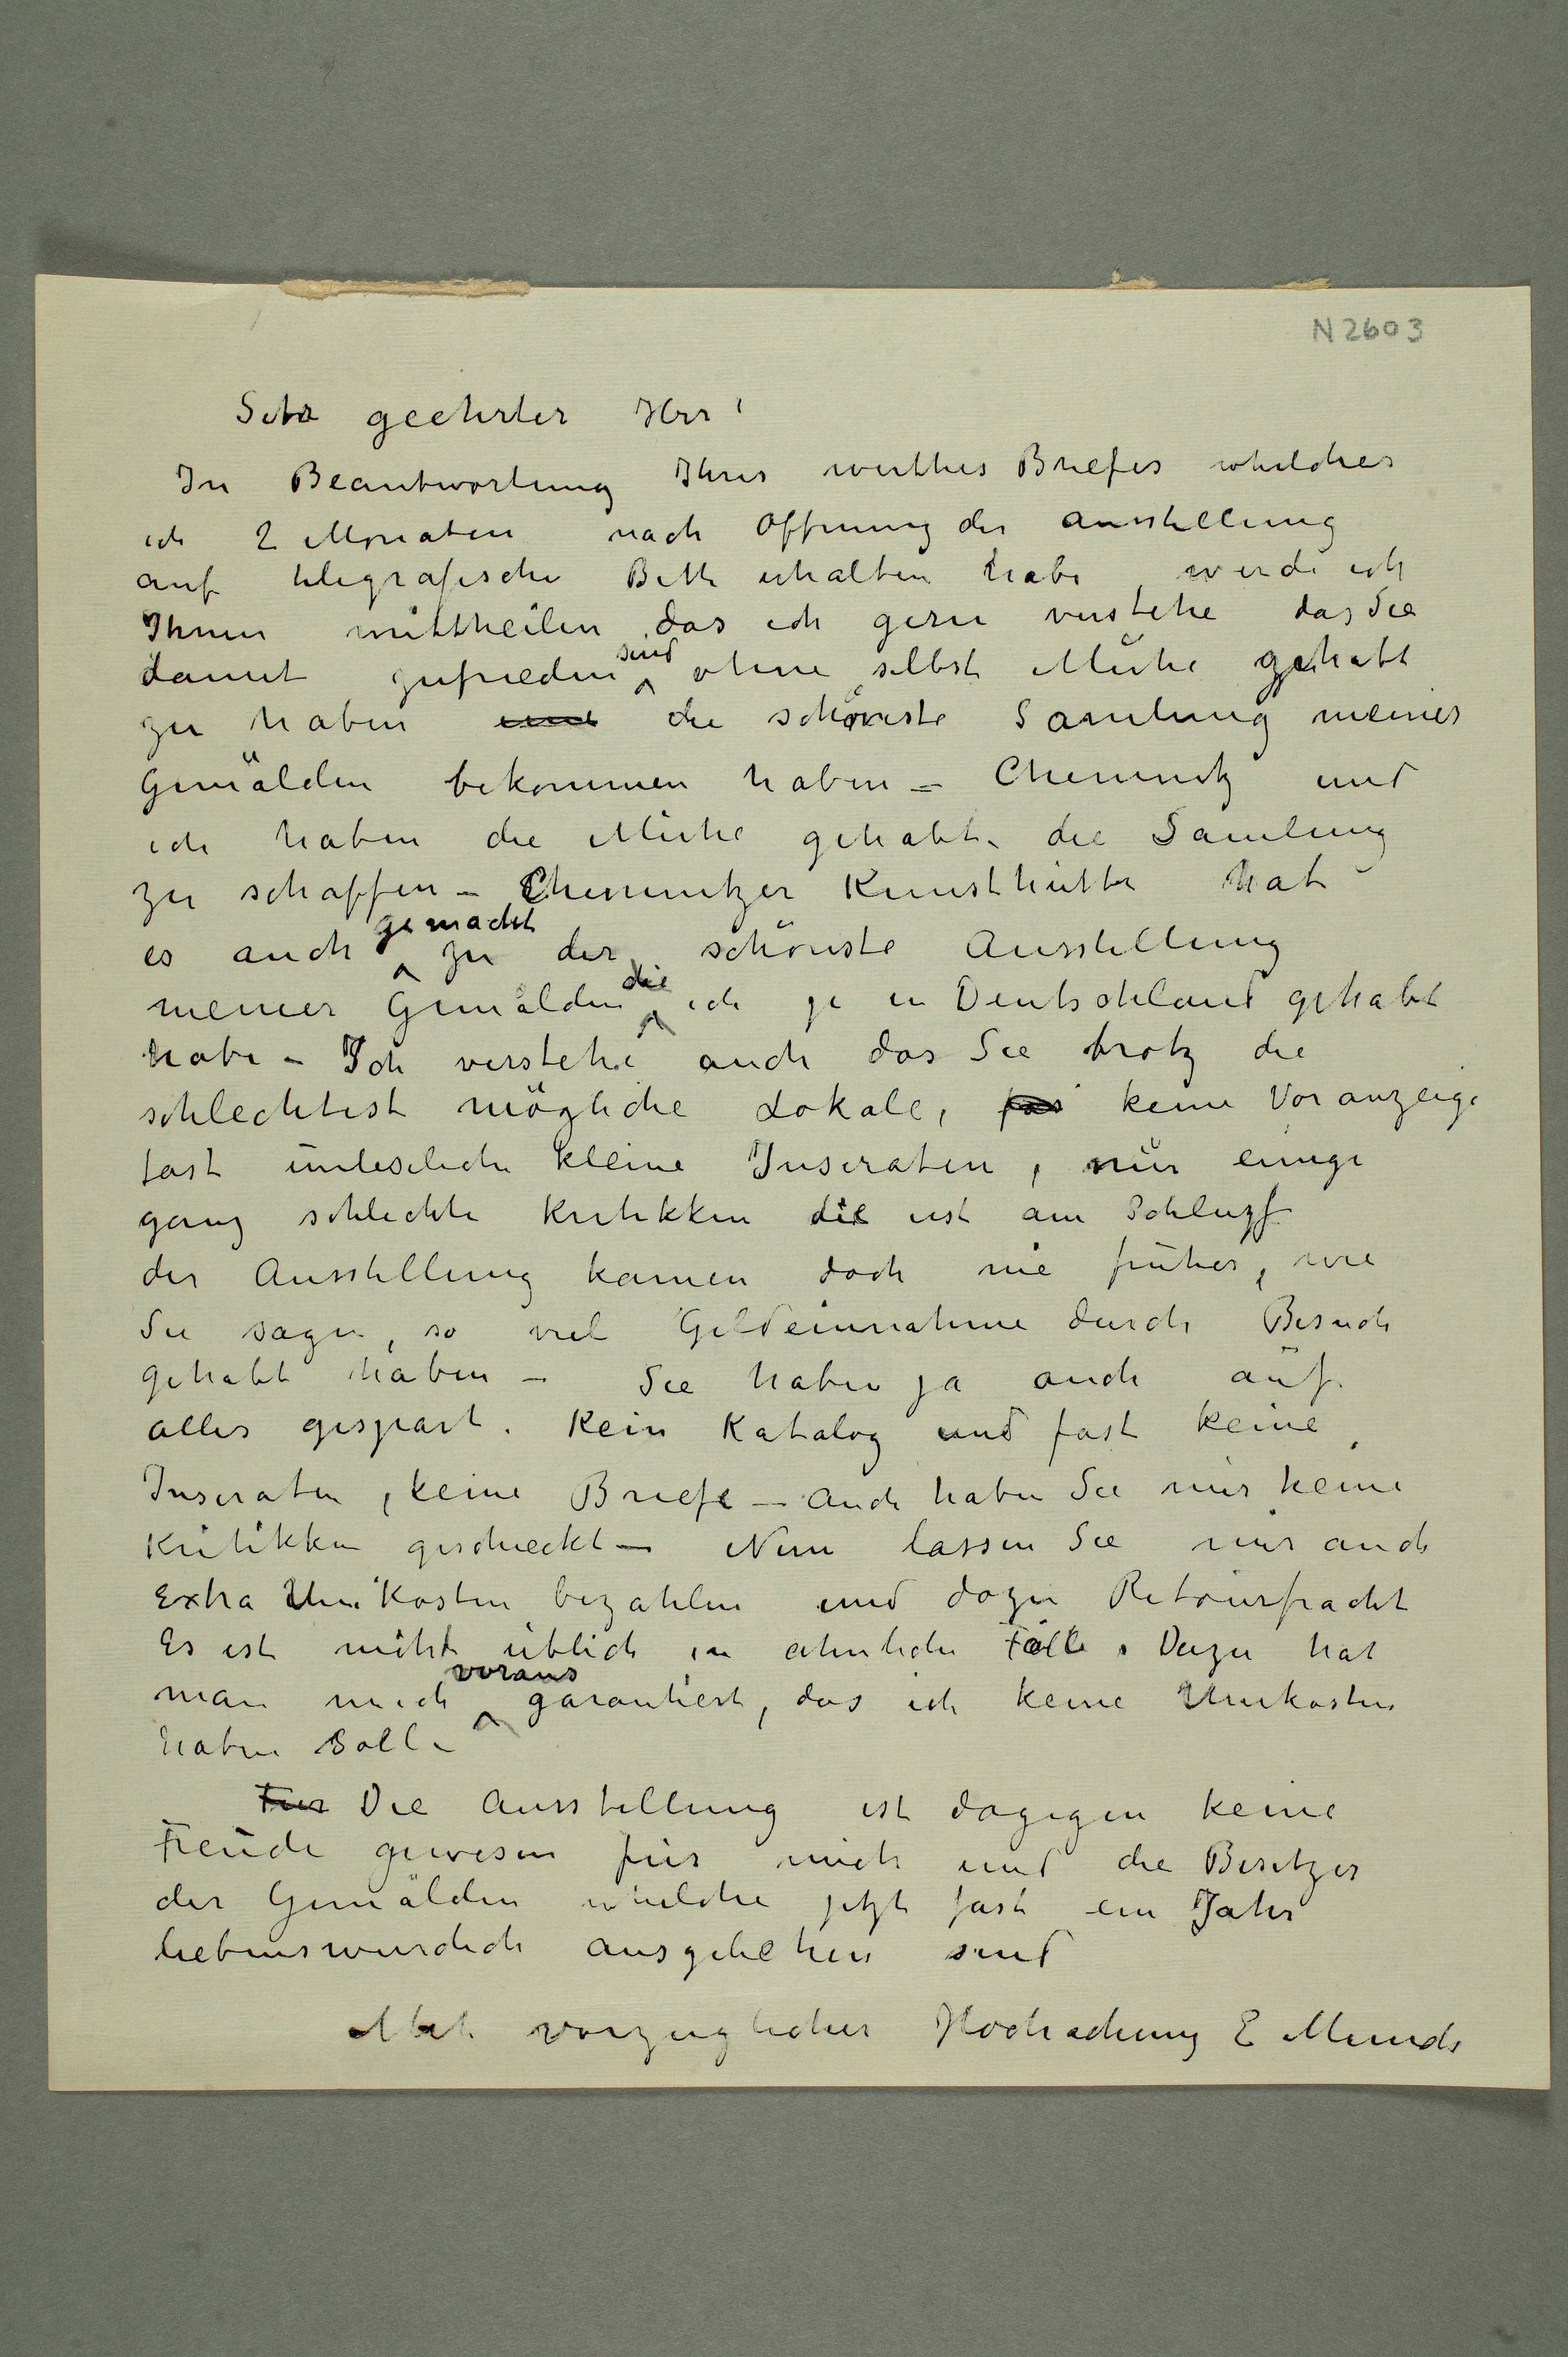 N 2603
Sehr geehrter Herr!
In Beantwortung Ihres werthes Briefes whelches
ich 2 Monaten nach Offnung der Ausstellung
auf telegrafische Bitte erhalten habe, werde ich
Ihnen mittheilen das ich gern verstehe das Sie
damit zufrieden sind ohne selbst Mühe gehabt
zu haben eine die schönste Samlung meiner
Gemälden bekommen haben – Chemnitz und
ich haben die Mühe gehabt die Samlung
zu schaffen – Chemnitzer Kunsthütte hat
es auch gemacht zu der schönste Ausstellung
meiner Gemälden die ich je in Deutschland gehabt
habe – Ich verstehe auch das Sie trotz die
schlechtest mögliche Lokale, fas keine Voranzeige
fast unleseliche kleine Inseraten, nur einige
ganz schlechte Kritikken die erst am Schluzs
der Ausstellung kamen doch nie früher, wie
Sie sagen, so viel Geldeinnahme durch Besuch
gehabt haben – Sie haben ja auch auf
alles gespart. Kein Katalog und fast keine
Inseraten, keine Briefe – Auch haben Sie mir keine
Kritikken geschieckt – Nun lassen Sie mir auch
Extra Unkosten bezahlen und dazu Retourfracht
Es ist nicht üblich in ähnliche Fälle. Dazu hat
man mich voraus garantiert, das ich keine Unkosten
haben soll –
Für Die Ausstellung ist dagegen keine
Freude gewesen für mich und die Besitzer
der Gemälden whelche jetzt fast ein Jahr
liebenswurdich ausgeliehen sind
Mit vorzüglicher Hochachtung E Munch